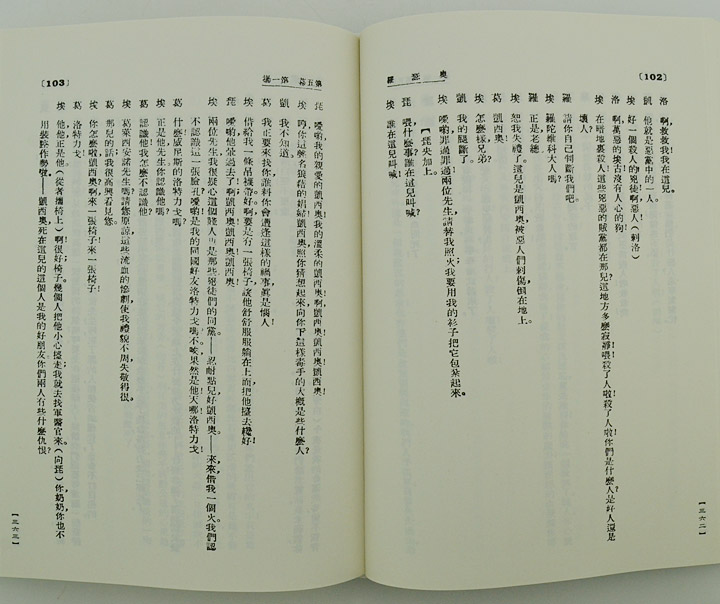 〔102〕
奧瑟羅
洛 啊，救救我我在這兒。
凱 他就是惡黨中的一人。
埃 好一個殺人的兇徒，啊惡人！（刺洛）
洛 啊，萬惡的埃古沒有人心的狗！
埃 在暗地裏殺人！這些兇惡的賊黨都在那兒這地方多麼寂靜！喂，殺了人啦！殺了人啦！你們是什麼人是好人還是
壞人？
羅 請你自己判斷我們吧。
埃 羅陀維科大人嗎？
羅 正是，老總。
埃 恕我失禮了。這兒是凱西奧，被惡人們刺傷倒在地上。
葛 凱西奧！
埃 怎麼樣，兄弟？
凱 我的腿斷了。
埃 噯喲，罪過罪過！兩位先生，請替我照火；我要用我的衫子把它包紮起來。
【琵央加上。
琵 喂，什麼事？誰在這兒叫喊？
埃 誰在這兒叫喊！
【三六二】
〔103〕
第五幕 第一場
琵 噯喲，我的親愛的凱西奧！我的溫柔的凱西奧！啊，凱西奧！凱西奧！凱西奧！
埃 哼，你這聲名狼藉的娼婦！凱西奧，照你猜想起來，向你下這樣毒手的大概是些什麼人？
凱 我不知道。
葛 我正要來找你，誰料你會遭逢這樣的禍事，眞是惱人！
埃 借給我一條吊襪帶。好，啊，要是有一張椅子，讓他舒舒服服躺在上面，把他擡去纔好！
琵 噯喲，他暈過去了！啊，凱西奧！凱西奧！凱西奧！
埃 兩位先生，我很疑心這個賤人也是那些兇徒們的同黨。——忍耐點兒，好凱西奧——來，來，借我一個火。我們認
不認識這一張臉？噯喲！是我的同國好友洛特力戈嗎？不。唉，果然是他！天哪！洛特力戈！
葛 什麼！威尼斯的洛特力戈嗎？
埃 正是他，先生，你認識他嗎？
葛 認識他！我怎麼不認識他？
埃 葛萊西安諾先生嗎？請您原諒，這些流血的慘劇，使我禮貌不周，失敬得很。
葛 那兒的話；我很高興看見您。
埃 你怎麼啦，凱西奧？啊，來一張椅子！來一張椅子！
葛 洛特力戈！
埃 他，他，正是他。（從者攜椅上）啊！很好；椅子。幾個人把他小心擡走；我就去找軍醫官來。（向琵）你，奶奶，你也不
用裝腔作勢啦。——凱西奧，死在這兒的這個人是我的好朋友。你們兩人有些什麼仇恨？
【三六三】